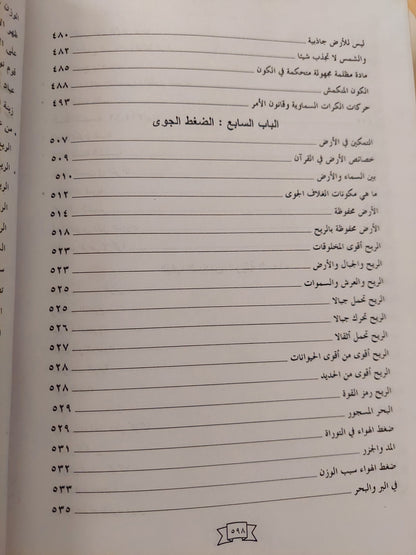 ليس للأرض جاذبية ٤٨٠
والشمس لا تجذب شيئا ٤٨٢
مادة مظلمة مجهولة متحكمة في الكون ٤٨٥
الكون المنكمش ٤٨٨
حركات الكرات السماوية وقانون الأمر ٤٩٣
الباب السابع : الضغط الجوى
التمكين في الأرض ٥٠٧
خصائص الأرض في القرآن ٥٠٩
بين السماء والأرض ٥١٠
ما هي مكونات الغلاف الجوى ٥١٢
الأرض محفوظة ٥١٤
الأرض محفوظة بالريح ٥١٨
الريح أقوى المخلوقات ٥٢٣
الريح والجبال والأرض ٥٢٣
الريح والعرش والسموات ٥٢٥
الريح تحمل جبالا ٥٢٥
الريح تحرك جبالا ٥٢٦
الريح تحمل أثقالا ٥٢٧
الريح أقوى من أقوى الحيوانات ٥٢٨
الريح أقوى من الحديد ٥٢٨
الريح رمز القوة ٥٢٩
البحر المسجور ٥٢٩
ضغط الهواء في التوراة ٥٣١
المد والجزر ٥٣٢
ضغط الهواء سبب الوزن ٥٣٣
في البر والبحر ٥٣٥
٥٩٨